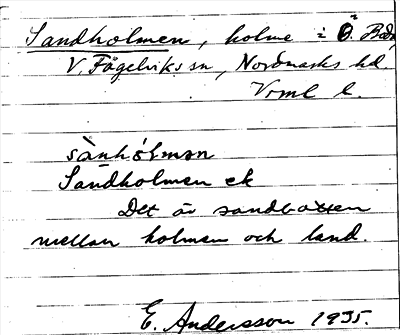 Sandholmen, holme i Ö.
V. Fågelviks sn, Nordmarks hd.
Vrml l.
sànhólmən
Sandholmen ek
Det är sandbotten
mellan holmen och land.
E. Andersson 1935.